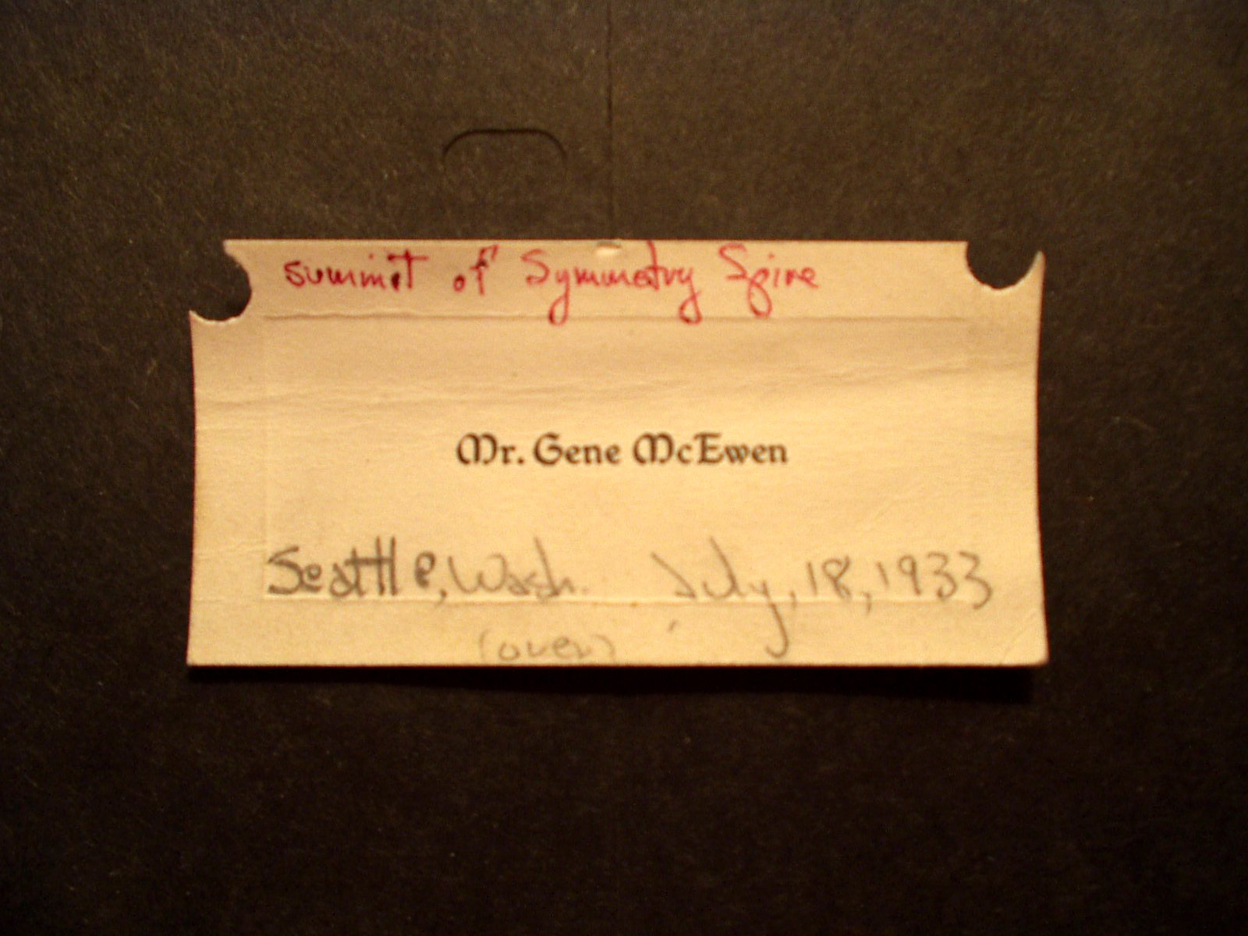 summit of Symmetry Spire
Mr. Gene McEwen
Seattle, Wash. July, 18, 1933
(over)